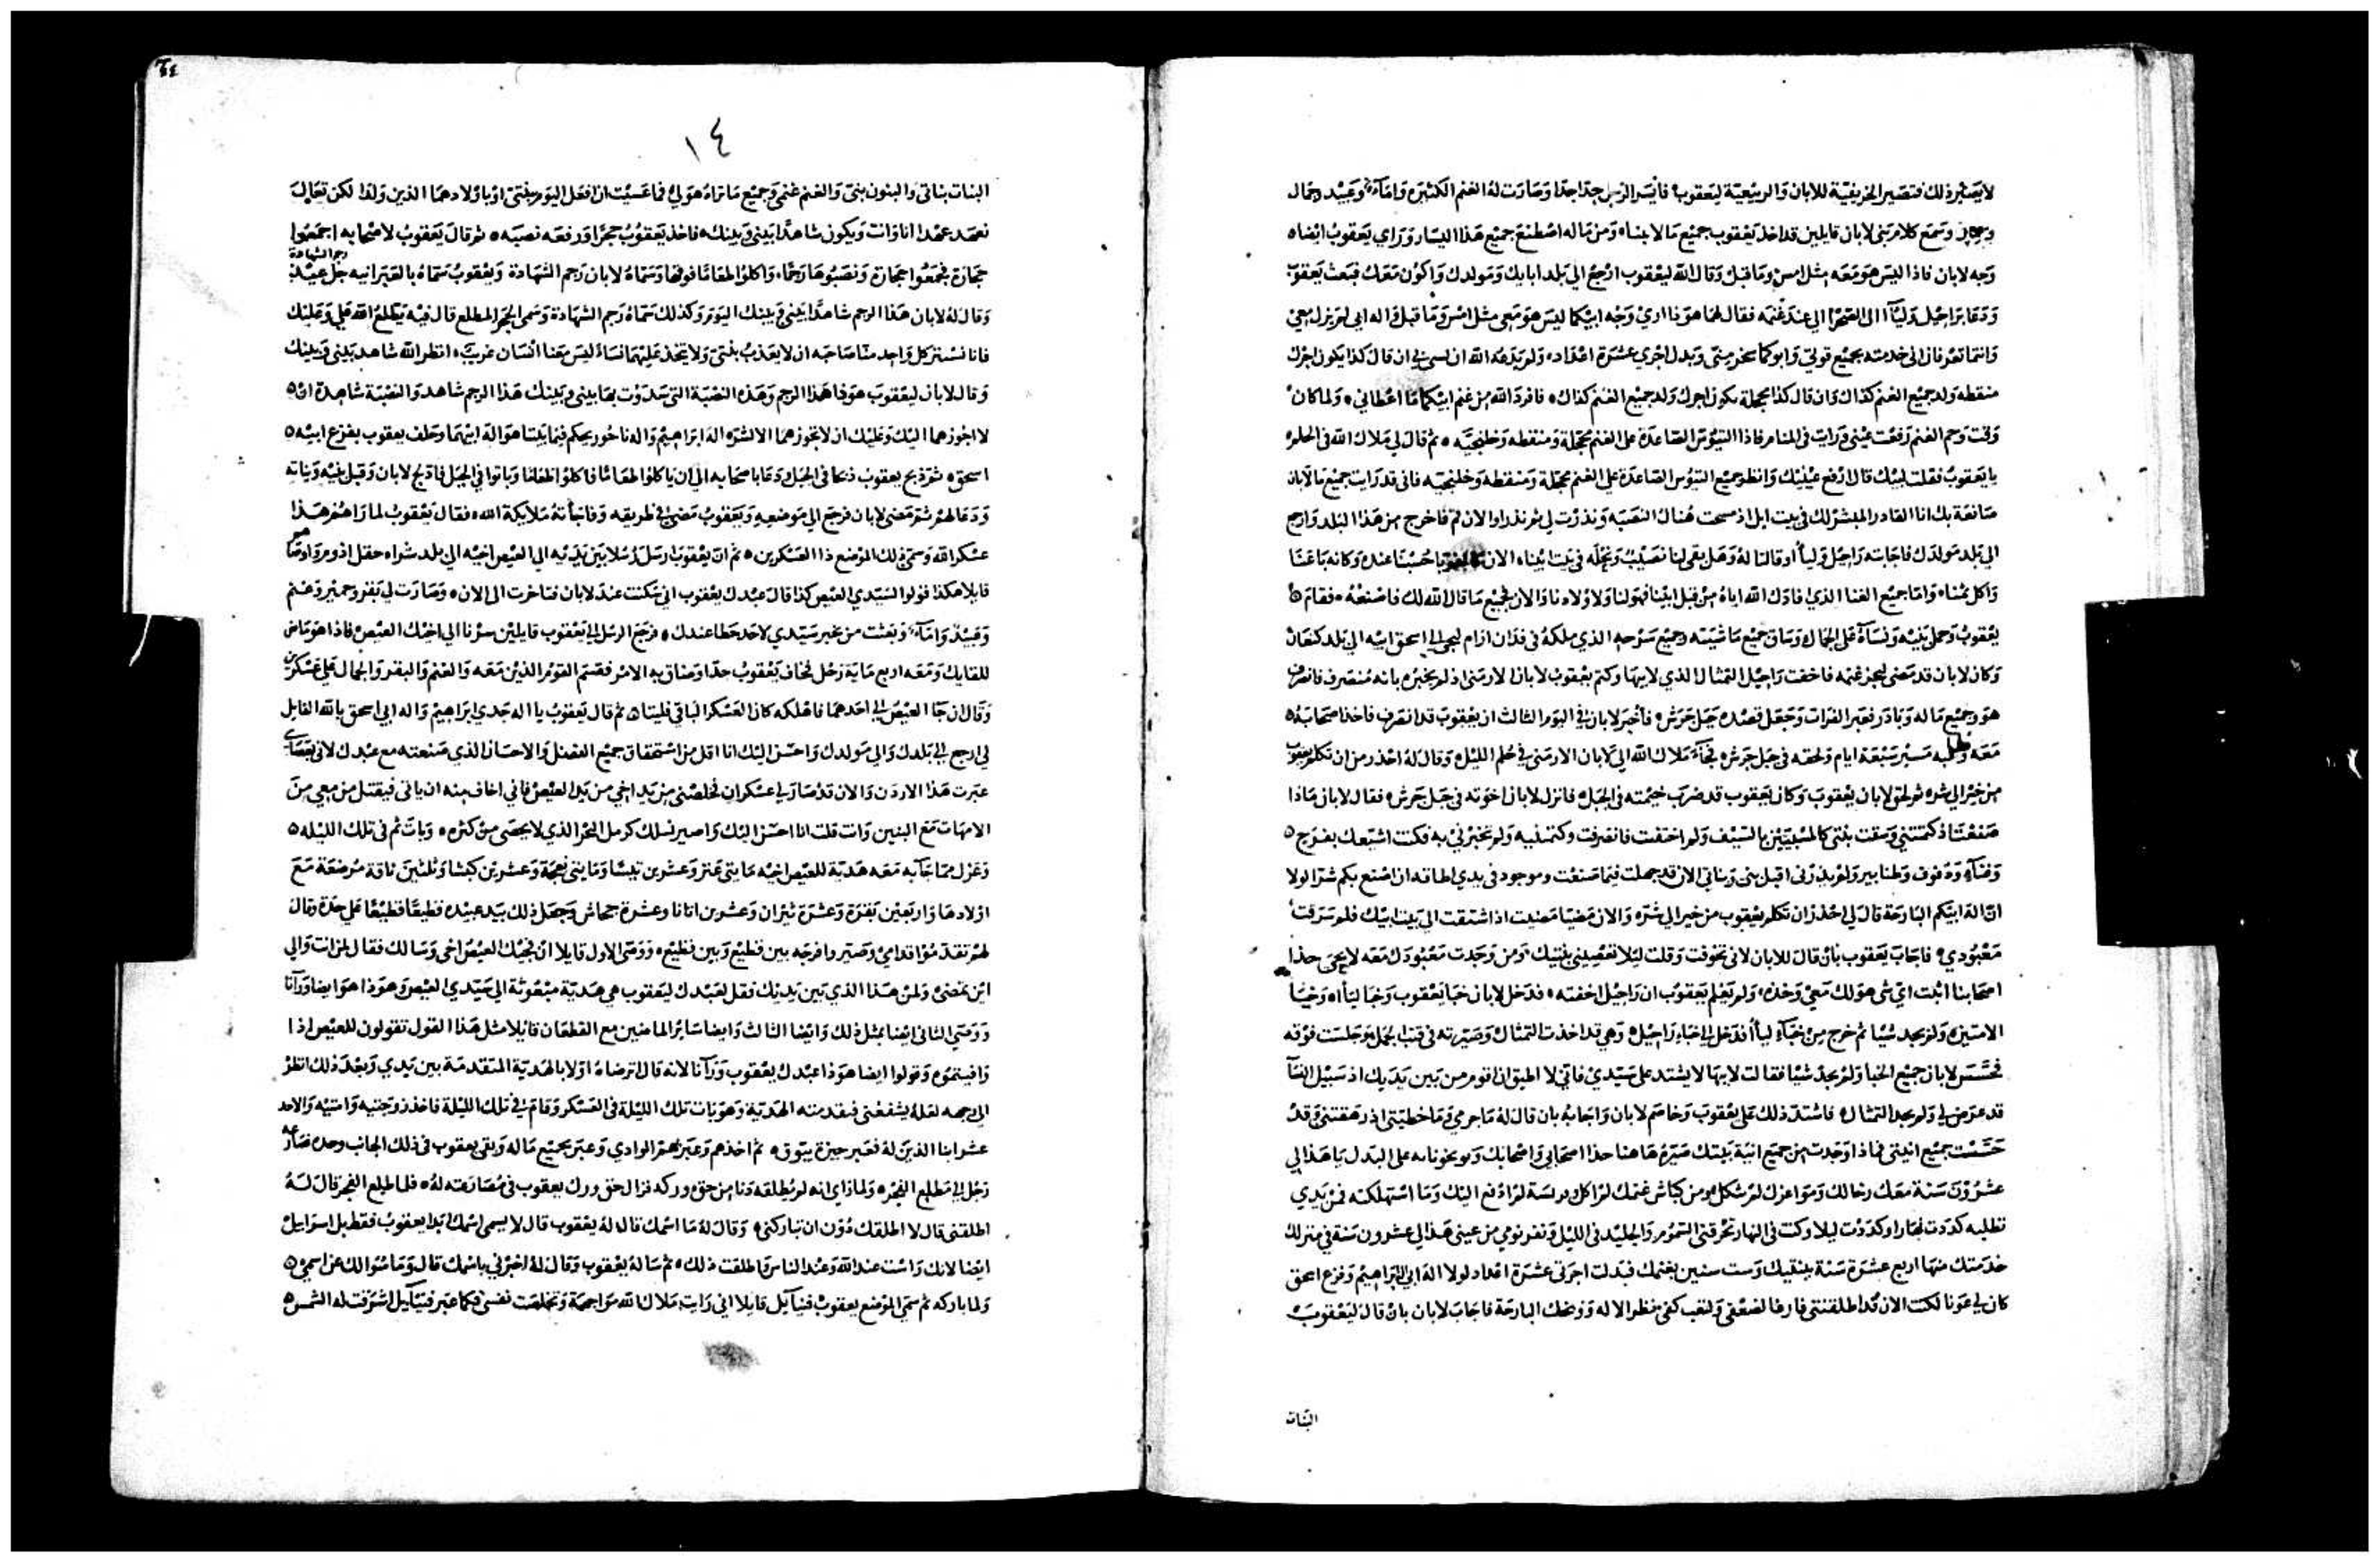 لايصير ذلك فتصير الخريفية للابان والربيعية ليعقوب فأيسر الرجل جدا جدا وصارت له الغنم الكثيره وامآء وعبيد وجمال
وحمير وسمع كلام بني لابان قايلين قد اخذ يعقوب جميع مالابينا ومن ماله اصطنع جميع هذا اليسار وراي يعقوب ايضا
وجه لابان فاذا ليس هو معه مثل امس وماقبل وقال الله ليعقوب ارجع الي بلد ابايك ومولدك واكون معك فبعث يعقوب
ودعا براحيل وليآ الى الصحرا الي عند غنمه فقال لهما هوذا اري وجه ابيكما ليس هو معي مثل امس وما قبل واله ابي لم يزل معي
وانتما تعرفان اني خدمته بجميع قوتي وابوكما سخر مني وبدل اجري عشرة اعداد ولم يدعه الله ان يسي بي ان قال كذا يكون اجرك
منقطه ولد جميع الغنم كذاك وان قال كذا محجلة يكون اجرك ولد جميع الغنم كذاك فافرد الله من غنم ابيكما ما اعطاني ولما كان
وقت وحم الغنم رفعت عيني ورايت في المنام فاذا التيوس الصاعدة على الغنم محجلة ومنقطه وخلنجيه ثم قال لي ملاك الله في الحلم
يا يعقوب فقلت لبيك قال ارفع عينيك وانظر جميع التيوس الصاعدة علي الغنم محجلة ومنقطه وخلنجيه فاني قد رايت جميع ما لابان
صانعة بك انا القادر المبشر لك في بيت ايل اذ مسحت هناك النصبه ونذرت لي ثم نذرا والان قم فاخرج من هذا البلد وارجع
الي بلد مولدك فاجابته راحيل وليأ او قالتا له وهل بقي لنا نصيب ونحله في بيت ابينا الان احسبنا عنده وكانه باعنا
واكل ثمننا واما جميع الغنا الذي فادك الله اياه من قبل ابينا فهو لنا ولاولادنا والان فجميع ما قال الله لك فاصنعه فقام
يعقوب وحمل بنيه ونسآه على الجمال وساق جميع ماشيته وجميع سرحه الذي ملكه في فدان ارام ليجي الي اسحق ابيه الي بلد كنعان
وكان لابان قد مضي ليجز غنمه فاخفت راحيل التمثال الذي لابيها وكتم يعقوب لابان الارمني اذ لم يخبره بانه منصرف فانصرف
هو وجميع ماله وبادر فعبر الفرات وجعل قصده جبل جرش فأخبر لابان في اليوم الثالث ان يعقوب قد انصرف فاخذ اصحابه
معه وطلبه مسير سبعة ايام ولحقه في جبل جرش فجآء ملاك الله الي لابان الارمني في حلم الليل وقال له احذر من ان تكلم يعقوب
من خير الي شر ثم لحق لابان يعقوب وكان يعقوب قد ضرب خيمته في الجبل فانزل لابان اخوته في جبل جرش فقال لابان ماذا
صنعت اذ كتمتني وسقت بنتي كالمسبيتين بالسيف ولم اخفت فانصرفت وكتمتنيه ولم تخبرني به فكنت اشيعك بفرح
وغنآء ودفوف وطنابير ولم يذرني اقبل بني وبناتي الان قد جهلت فيما صنعت وموجود في يدي اطاقه ان اصنع بكم شرا لولا
ان اله ابيكم البارحة قال لي احذر ان تكلم يعقوب من خير الي شره والان مضيا مضيت اذ اشتقت الي بيت ابيك فلم سرقت
معبودي فاجاب يعقوب بان قال للابان لاني تخوفت وقلت ليلا تغصبني بنتيك ومن وجدت معبودك معه لا يحيي حذا
اصحابنا اثبت اي شي هو لك معي وخذه ولم يعلم يعقوب ان راحيل اخفته فدخل لابان خبا يعقوب وخبا ليأ وخبا
الامتين ولم يجد شيا ثم خرج من خبآء ليأ فدخل الي خباء راحيل وهي قد اخذت التمثال وصيرته في قتب الجمل وجلست فوقه
فجسس لابان جميع الخبا ولم يجد شيا فقالت لابيها لا يشتد على سيدي فاني لا اطيق ان اقوم من بين يديك اذ سبيل النسآ
قد عرض لي ولم يجد التمثال فاشتد ذلك على يعقوب وخاصم لابان واجابه بان قال له ما جرمي وما خطيتي اذ رهقتني وقد
جسست جميع انيتي فماذا وجدت من جميع انية بيتك صيره هاهنا حذا اصحابي واصحابك ويوبخونا به على البدل يا هذا لي
عشرون سنة معك رخالك ومواعزك لم تثكل ومن كباش غنمك لم اكل وفريسة لم ارفع اليك وما استهلكته فمن يدي
تطلبه كددت نهارا وكددت ليلا وكنت في النهار تحرقني السموم والجليد في الليل ونفر نومي من عيني هذا لي عشرون سنة في منزلك
خدمتك منها اربع عشرة سنة بابنتيك وست سنين بغنمك فبدلت اجرتي عشرة اعداد لولا اله ابي ابراهيم وفزع اسحق
كان لي عونا لكنت الان قد اطلقتني فارغا لضعفي ولتعب كفي نظر الاله ووبخك البارحة فاجاب لابان بان قال ليعقوب
البنات
١٤
البنات بناتي والبنون بني والغنم غنمي وجميع ما تراه هو لي فما عسيت ان افعل اليوم ببنتي او باولادهما الذين ولدا لكن تعال
نعهد عهدا انا وانت ويكون شاهدا بيني وبينك فاخذ يعقوب حجرا ورفعه نصبه ثم قال يعقوب لاصحابه اجمعوا
رجم الشهادة
حجارة فجمعوا حجارة ونصبوها رجما واكلوا طعاما فوقها وسماه لابان رجم الشهادة ويعقوب سماه بالعبرانيه جل عيد
وقال له لابان هذا الرجم شاهدا بيني وبينك اليوم وكذلك سماه رجم الشهادة وسمى الحجر المطلع قال فيه يطلع الله علي وعليك
فانا نستتر كل واحد منا صاحبه ان لا يعذب بنتي ولا يتخذ عليهما نساء ليس معنا انسان غريب انظر الله شاهد بيني وبينك
وقال لابان ليعقوب هوذا هذا الرجم وهذه النصبة التي سددت بها بيني وبينك هذا الرجم شاهد والنصبة شاهدة ان
لا اجوزهما اليك وعليك ان لا تجوزهما الا لشره اله ابراهيم واله ناحور يحكم فيما بيننا هو اله ابيهما وحلف يعقوب بفزع ابيه
اسحق ثم ذبح يعقوب ذبحا في الجبل ودعا باصحابه الي ان ياكلوا طعاما فاكلوا طعاما وباتوا في الجبل فادلج لابان وقبل بنيه وبناته
ودعا لهم ثم مضي لابان فرجع الي موضعه ويعقوب مضي في طريقه وفاجأته ملايكة الله فقال يعقوب لما راهم هذا
عسكر الله وسمي ذلك الموضع ذا العسكرين ثم ان يعقوب ارسل رسلا بين يديه الي العيص اخيه الي بلد شراه حقل ادوم واوصاهم
قايلا هكذا قولوا لسيدي العيص كذا قال عبدك يعقوب اني سكنت عند لابان فتاخرت الى الان وصارت لي بقر وحمير وغنم
وعبيد وامآء وبعثت من يخبر سيدي لاجد حظا عندك فرجع الرسل الي يعقوب قايلين سرنا الي اخيك العيص فاذا هو ماض
للقايك ومعه اربع ماية رجل فخاف يعقوب جدا وضاق به الامر فقسم القوم الذين معه والغنم والبقر والجمال على عسكرين
وقال ان جا العيص الي احدهما فاهلكه كان العسكر الباقي فليتا ثم قال يعقوب يا اله جدي ابراهيم واله ابي اسحق يالله القايل
لي ارجع الي بلدك والي مولدك واحسن اليك انا اقل من استحقاق جميع الفضل والاحسان الذي صنعته مع عبدك لاني بعصاي
عبرت هذا الاردن والان قد صار لي عسكران فخلصني من يد اخي من يد العيص فاني اخاف منه ان ياتي فيقتل من معي من
الامهات مع البنين وانت قلت انا احسن اليك واصير نسلك كرمل البحر الذي لا يحصى من كثره وبات ثم في تلك الليله
وعزل مما جآبه معه هدية للعيص اخيه مايتي عنز وعشرين تيسا ومايتي نعجة وعشرين كبشا وثلثين ناقة مرضعة مع
اولادها واربعين بقرة وعشرة ثيران وعشرين اتانا وعشرة جحاش وجعل ذلك بيد عبيده قطيعا قطيعا على حدة وقال
لهم تقدموا قدامي وصيروا فرجه بين قطيع وبين قطيع ووصى الاول قايلا ان فجيك العيص اخي وسالك فقال لمن انت والي
اين تمضي ولمن هذا الذي بين يديك فقل لعبدك ليعقوب هي هدية مبعوثة الي سيدي العيص وهوذا هو ايضا ورآنا
ووصي الثاني ايضا بمثل ذلك وايضا الثالث وايضا سائر الماضين مع القطعان قايلا مثل هذا القول تقولون للعيص اذا
وافيتموه وقولوا ايضا هوذا عبدك يعقوب ورآنا لانه قال اترضاه اولا بالهدية المتقدمة بين يدي وبعد ذلك انظر
الي وجهه لعله يشفعني فتقدمته الهدية وهو بات تلك الليلة في العسكر وقام في تلك الليلة فاخذ زوجتيه وامتيه والاحد
عشر ابنا الذين له فعبر جيزة يبوق ثم اخذهم وعبر بهم الوادي وعبر بجميع ماله وبقي يعقوب في ذلك الجانب وحده فصارعه
رجل الي مطلع الفجر ولما راي انه لم يطلقه دنا من حق وركه فزال حق ورك يعقوب في مصارعته له فلما طلع الفجر قال له
اطلقني قال لا اطلقك دون ان تباركني وقال له ما اسمك قال له يعقوب قال لا يسمى اسمك ابدا يعقوب فقط بل اسراييل
ايضا لانك راست عند الله وعند الناس واطلقت ذلك ثم ساله يعقوب وقال له اخبرني باسمك قال وما سوالك عن اسمي
ولما باركه ثم سمي الموضع يعقوب فنيآيل قايلا اني رايت ملاك الله مواجهة وتخلصت نفسي فكما عبر فنيآييل اشرقت له الشمس